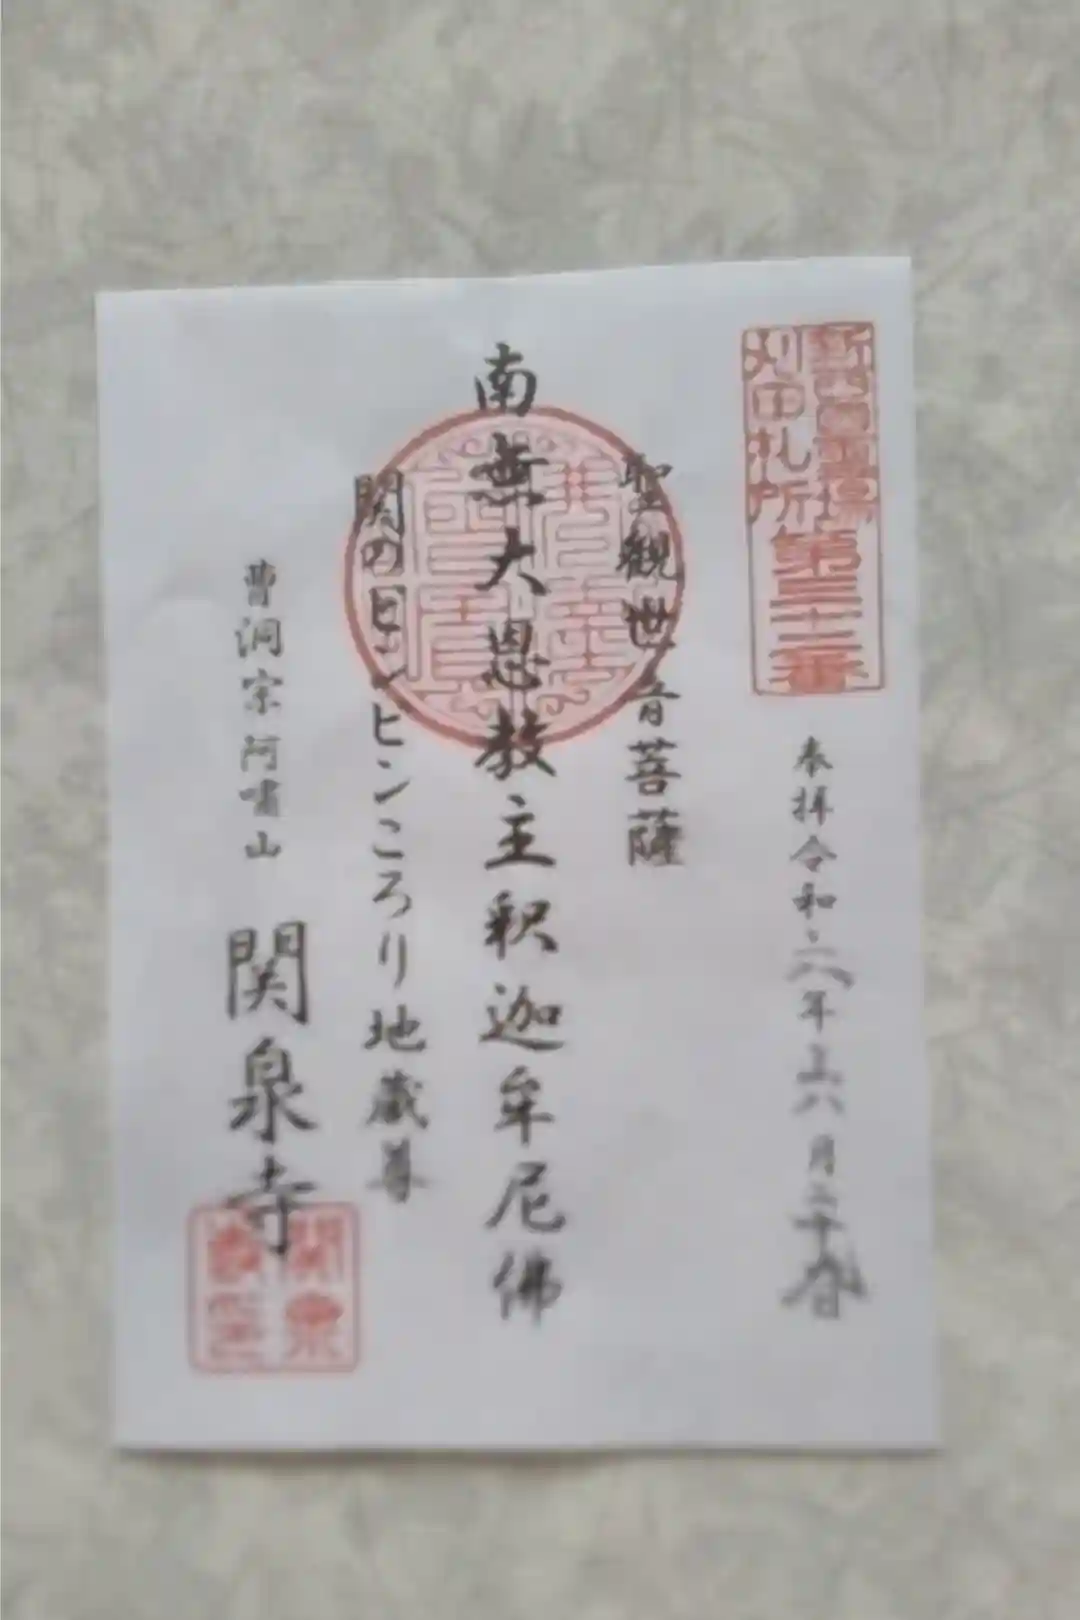 新西国霊場
刈田札所
第三十二番
奉拝令和六年六月二十八日
聖観世音菩薩
南無大恩教主釈迦牟尼佛
関のピンピンころり地蔵尊
曹洞宗阿嘯山
関泉寺
関泉